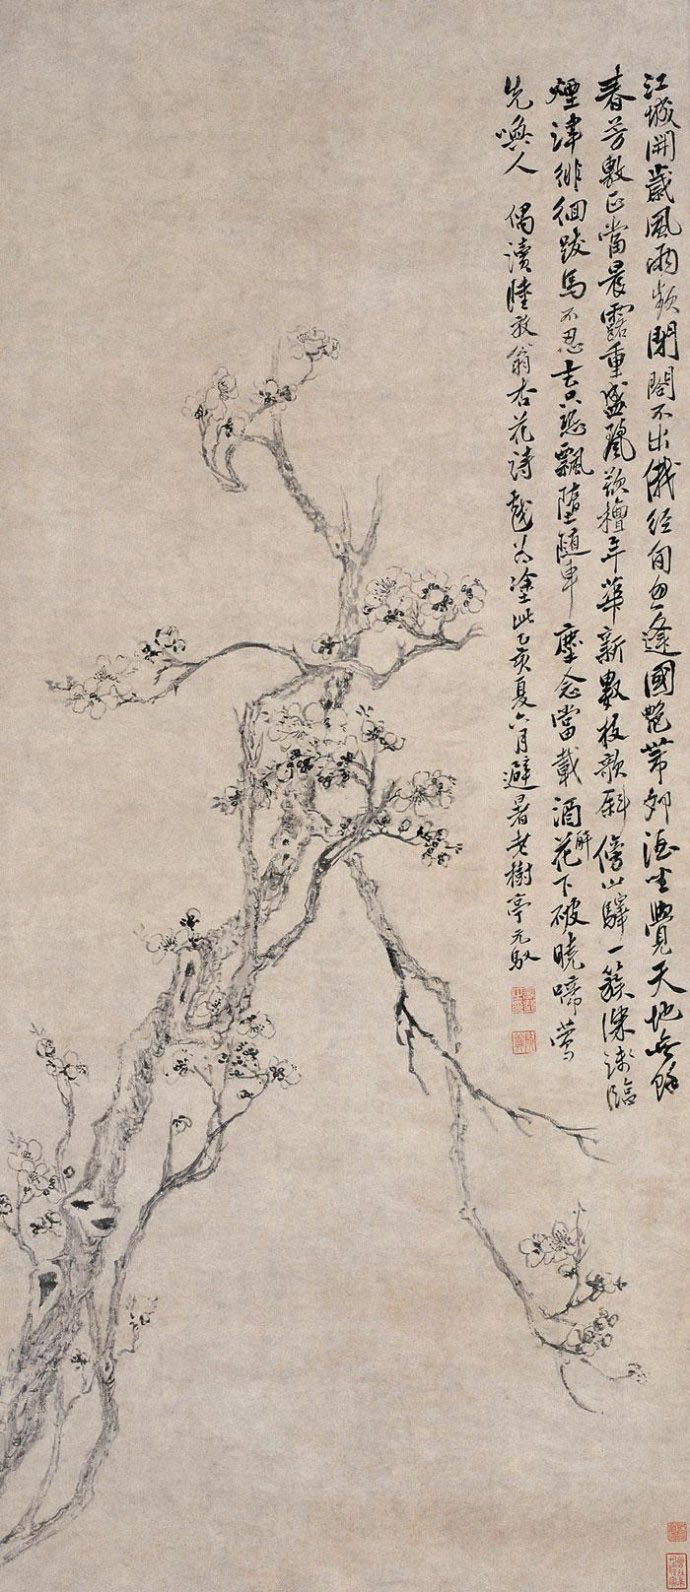 江城開歲風雨頻閉閤不出俄經旬忽逢國艷帶卯酒坐覺天地無餘
春芳敷正當晨露重盛麗欲擅年華新數枝欹斜傍山驛一簇深淺臨
煙津徘徊跋馬不忍去只恐飄墮隨車塵念當載酒醉花下破曉啼鶯
先喚人 偶讀陸放翁杏花詩戲為塗此乙亥夏六月避暑老樹亭元馭